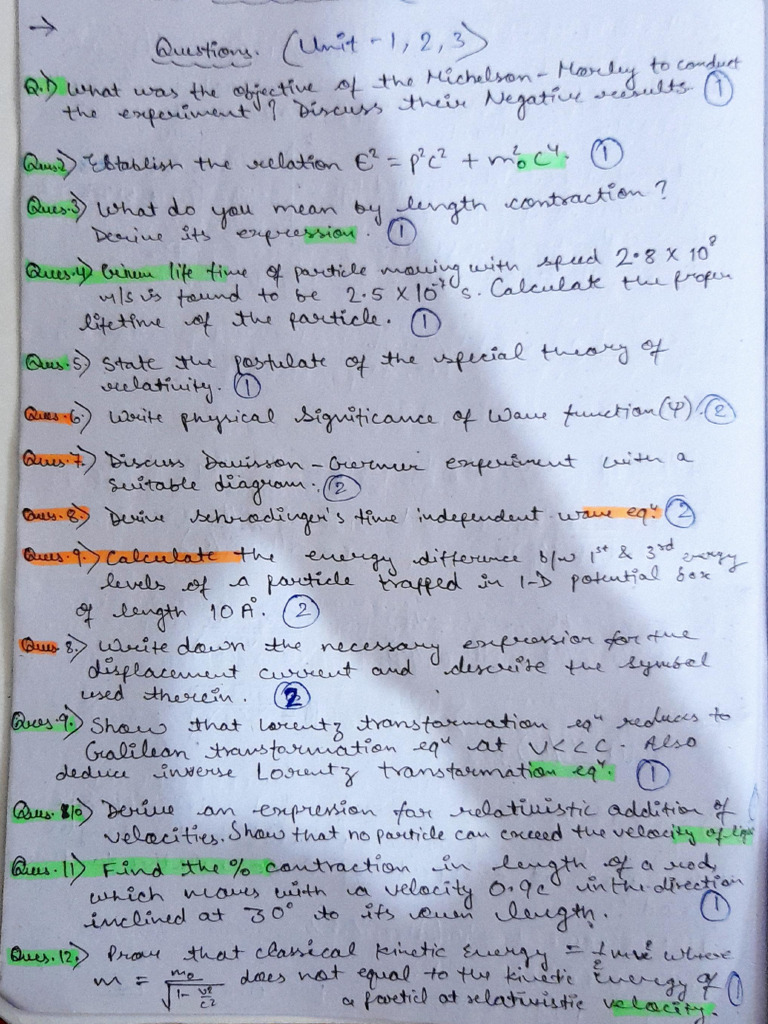 →
Questions. (Unit - 1, 2, 3)
Q.1) What was the objective of the Michelson - Morley to conduct
the experiment? Discuss their Negative results. (1)
Ques.2) Establish the relation E² = p²c² + m₀²c⁴. (1)
Ques.3) What do you mean by length contraction?
Derive its expression. (1)
Ques.4) Given life time of particle moving with speed 2.8 × 10⁸
m/s is found to be 2.5 × 10⁻⁷ s. Calculate the proper
lifetime of the particle. (1)
Ques.5) State the postulate of the special theory of
relativity. (1)
Ques.6.) Write physical Significance of Wave function (Ψ). (2)
Ques.7.) Discuss Davisson - Germer experiment with a
suitable diagram. (2)
Ques.8.) Derive schrodinger's time independent wave eqⁿ. (2)
Ques.9.) Calculate the energy difference b/w 1st & 3rd energy
levels of a particle trapped in 1-D potential box
of length 10 A°. (2)
Ques 8.) Write down the necessary expression for the
displacement current and describe the symbol
used therein. (2)
Ques.9.) Show that Lorentz transformation eqⁿ reduces to
Galilean transformation eqⁿ at V<<C. Also
deduce inverse Lorentz transformation eqⁿ. (1)
Ques. 10) Derive an expression for relativistic addition of
velocities. Show that no particle can exceed the velocity of
Ques.11) Find the % contraction in length of a rod,
which moves with a velocity 0.9c in the direction
inclined at 30° to its own length. (1)
Ques.12.) Prove that classical kinetic Energy = ½mv² where
m = m₀/√(1 - v²/c²) does not equal to the kinetic Energy of (1)
a at relativistic velocity.